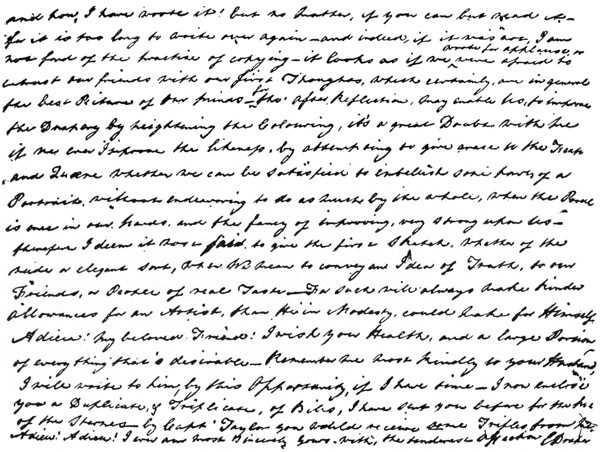 and how, I have wrote it! but no Matter, if you can but read it –
for it is too long to write over again – and indeed, if it was not, I am
not fond of the practice of copying – it looks as if we wrote for applause, or were afraid to
intrust our friends with our first Thoughts, which certainly, are in general
the best Picture of Our minds – & tho' after Reflection, may enable Us, to improve
the Drapery by heightening the Colouring, it's a great Doubt with me
if we ever Improve the likeness, by attempting to give Grace to the
and Quere whether we can be satisfied to embellish some parts of a
Portrait, without endeavouring to do as much by the whole, when the Pencil
is once in our hands, and the fancy of improving, very strong upon Us –
therefore I deem it most fair, to give the first Sketch, whether of the
rude or elegant sort, when We mean to convey an Idea of Truth, to our
Friends, or People of real Taste – For such will always make kinder
allowances for an Artist, than He in Modesty, could make for Himself
Adieu! my beloved Friend! I wish you Health, and a large Portion
of everything that's desirable – Remember me most kindly to your
I will write to him, by this Opportunity, if I have time – I now enclose
you a Duplicate, & Triplicate, of Bills, I have sent you before for the use
of the Sternes – by Capt Taylor you would receive some Trifles from
Adieu! Adieu! I ever am most Sincerely yours – with, the tenderest Affection E Draper